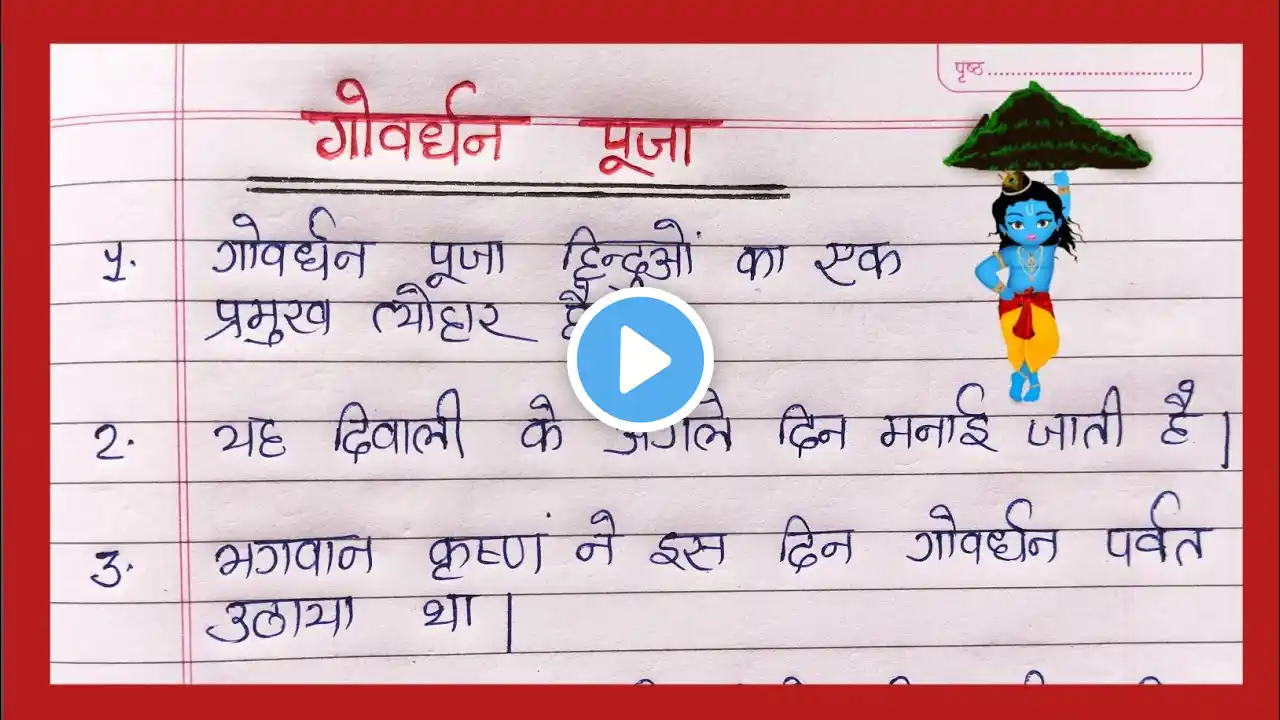 पृष्ठ
गोवर्धन पूजा
१. गोवर्धन पूजा हिन्दूओं का एक
प्रमुख त्यौहार है
२. यह दिवाली के अगले दिन मनाई जाती है।
३. भगवान कृष्णं ने इस दिन गोवर्धन पर्वत
उठाया था।